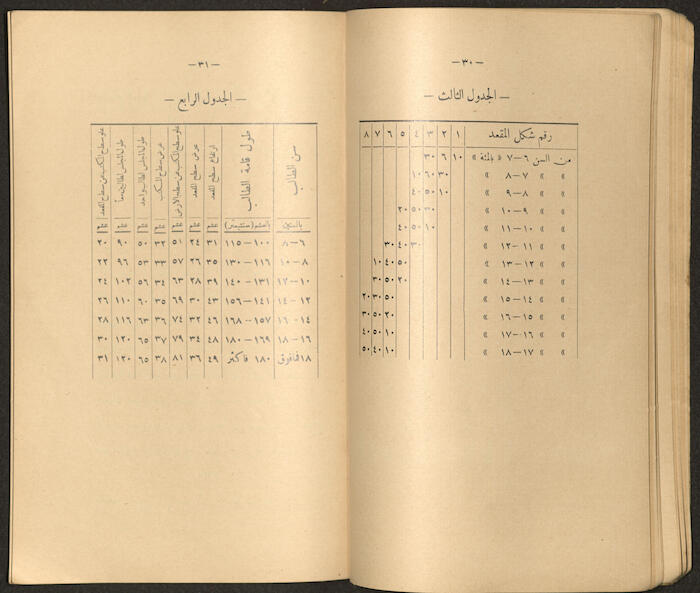 — ٣٠ —
— الجدول الثالث —
رقم شكل المقعد ١ ٢ ٣ ٤ ٥ ٦ ٧ ٨
من السن ٦—٧ «بالمئة» ١٠ ٦٠ ٣٠
» ٧—٨ » ٣٠ ٦٠ ١٠
» ٨—٩ » ١٠ ٥٠ ٤٠
» ٩—١٠ » ٣٠ ٥٠ ٢٠
» ١٠—١١ » ١٠ ٥٠ ٤٠
» ١١—١٢ » ٣٠ ٤٠ ٣٠
» ١٢—١٣ » ٥٠ ٤٠ ١٠
» ١٣—١٤ » ٢٠ ٥٠ ٣٠
» ١٤—١٥ » ٥٠ ٣٠ ٢٠
» ١٥—١٦ » ٢٠ ٥٠ ٣٠
» ١٦—١٧ » ١٠ ٥٠ ٤٠
» ١٧—١٨ » ١٠ ٤٠ ٥٠
— ٣١ —
— الجدول الرابع —
سن الطالب
طول قامة الطالب
ارتفاع سطح المقعد
عرض سطح المقعد
علو سطح المكتب عن سطح الارض
عرض سطح المكتب
طول المجلس لطالب واحد
طول المجلس لطالبين معاً
علو سطح المكتب عن سطح المقعد
بالسنين بالسنتم (سنتيمتر) سنتم سنتم سنتم سنتم سنتم سنتم سنتم
٦—٨ ١٠٠—١١٥ ٣١ ٢٤ ٥١ ٣٢ ٥٠ ٩٠ ٢٠
٨—١٠ ١١٦—١٣٠ ٣٥ ٢٦ ٥٧ ٣٣ ٥٣ ٩٦ ٢٢
١٠—١٢ ١٣١—١٤٠ ٣٩ ٢٨ ٦٣ ٣٤ ٥٦ ١٠٢ ٢٤
١٢—١٤ ١٤١—١٥٦ ٤٣ ٣٠ ٦٩ ٣٥ ٦٠ ١١٠ ٢٦
١٤—١٦ ١٥٧—١٦٨ ٤٦ ٣٢ ٧٤ ٣٦ ٦٣ ١١٦ ٢٨
١٦—١٨ ١٦٩—١٨٠ ٤٨ ٣٤ ٧٩ ٣٧ ٦٥ ١٢٠ ٣٠
١٨ فما فوق ١٨٠ فاكثر ٤٩ ٣٦ ٨١ ٣٨ ٦٥ ١٢٠ ٣١